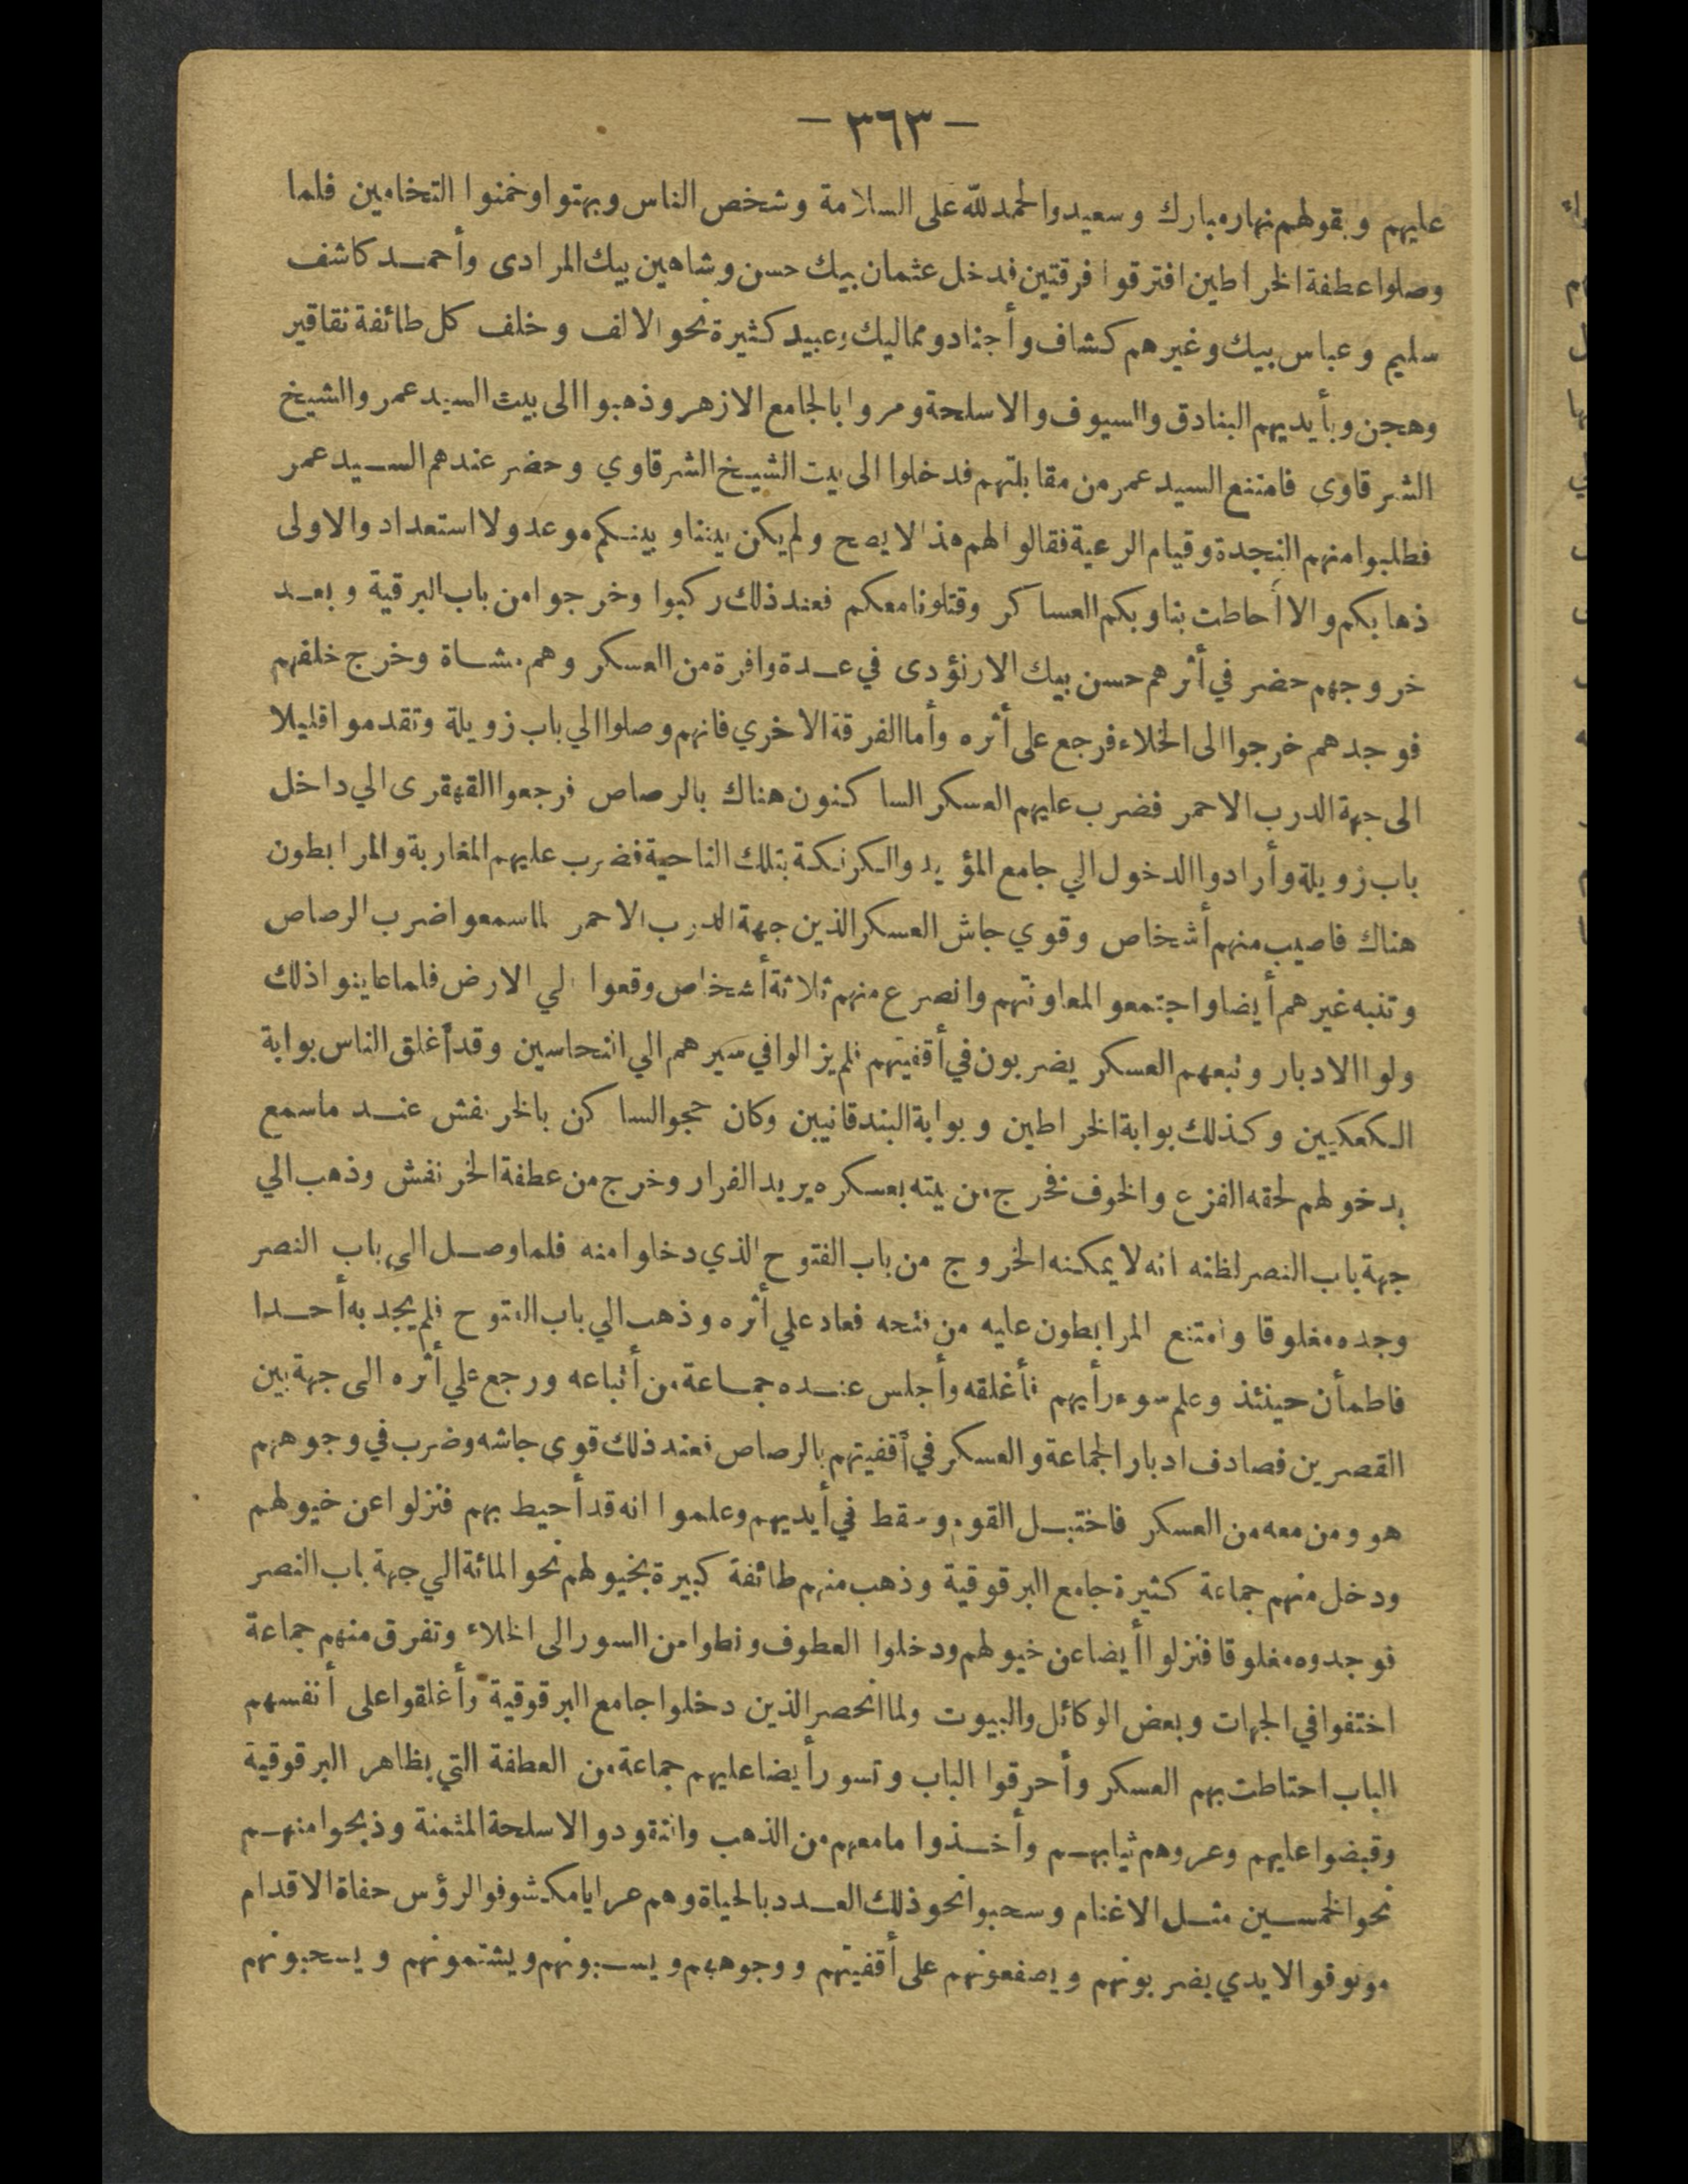 — ٣٦٣ —
عليهم وبقولهم نهار مبارك وسعيد والحمد لله على السلامة وشخص الناس وبهتوا وخمنوا التخامين فلما
وصلوا عطفة الخراطين افترقوا فرقتين فدخل عثمان بيك حسن وشاهين بيك المرادى وأحمد كاشف
سليم وعباس بيك وغيرهم كشاف وأجناد ومماليك وعبيد كثيرة نحو الالف وخلف كل طائفة نقاقير
وهجن وبأيديهم البنادق والسيوف والاسلحة ومروا بالجامع الازهر وذهبوا الى بيت السيد عمر والشيخ
الشرقاوى فامتنع السيد عمر من مقابلتهم فدخلوا الى بيت الشيخ الشرقاوي وحضر عندهم السيد عمر
فطلبوا منهم النجدة وقيام الرعية فقالوا لهم هذا لا يصح ولم يكن بيننا وبينكم موعد ولا استعداد والاولى
ذهابكم والا أحاطت بنا وبكم العساكر وقتلونا معكم فعند ذلك ركبوا وخرجوا من باب البرقية وبعد
خروجهم حضر في أثرهم حسن بيك الارنؤدى في عدة وافرة من العسكر وهم مشاة وخرج خلفهم
فوجدهم خرجوا الى الخلاء فرجع على أثره وأما الفرقة الاخري فانهم وصلوا الي باب زويلة وتقدموا قليلا
الى جهة الدرب الاحمر فضرب عليهم العسكر الساكنون هناك بالرصاص فرجعوا القهقرى الي داخل
باب زويلة وأرادوا الدخول الي جامع المؤيد والكرنكة بتلك الناحية فضرب عليهم المغاربة والمرابطون
هناك فاصيب منهم أشخاص وقوي جاش العسكر الذين جهة الدرب الاحمر لما سمعوا ضرب الرصاص
وتنبه غيرهم أيضا واجتمعوا لمعاونتهم وانصرع منهم ثلاثة أشخاص وقعوا الي الارض فلما عاينوا ذلك
ولوا الادبار وتبعهم العسكر يضربون في أقفيتهم فلم يزالوا في سيرهم الي النحاسين وقد أغلق الناس بوابة
الكعكيين وكذلك بوابة الخراطين وبوابة البندقانيين وكان حجو الساكن بالخرنفش عند ما سمع
بدخولهم لحقه الفزع والخوف فخرج من بيته بعسكره يريد الفرار وخرج من عطفة الخرنفش وذهب الي
جهة باب النصر لظنه انه لا يمكنه الخروج من باب الفتوح الذي دخلوا منه فلما وصل الى باب النصر
وجده مغلوقا وامتنع المرابطون عليه من فتحه فعاد علي أثره وذهب الي باب الفتوح فلم يجد به أحدا
فاطمأن حينئذ وعلم سوء رأيهم فأغلقه وأجلس عنده جماعة من أتباعه ورجع علي أثره الى جهة بين
القصرين فصادف ادبار الجماعة والعسكر في أقفيتهم بالرصاص فعند ذلك قوى جاشه وضرب في وجوههم
هو ومن معه من العسكر فاختبل القوم وسقط في أيديهم وعلموا انه قد أحيط بهم فنزلوا عن خيولهم
ودخل منهم جماعة كثيرة جامع البرقوقية وذهب منهم طائفة كبيرة بخيولهم نحو المائة الي جهة باب النصر
فوجدوه مغلوقا فنزلوا أيضا عن خيولهم ودخلوا العطوف ونطوا من السور الى الخلاء وتفرق منهم جماعة
اختفوا في الجهات وبعض الوكائل والبيوت ولما انحصر الذين دخلوا جامع البرقوقية وأغلقوا على أنفسهم
الباب احتاطت بهم العسكر وأحرقوا الباب وتسور أيضا عليهم جماعة من العطفة التي بظاهر البرقوقية
وقبضوا عليهم وعروهم ثيابهم وأخذوا ما معهم من الذهب والنقود والاسلحة المثمنة وذبحوا منهم
نحو الخمسين مثل الاغنام وسحبوا نحو ذلك العدد بالحياة وهم عرايا مكشوفو الرؤس حفاة الاقدام
موثوقو الايدي يضربونهم ويصفعونهم على أقفيتهم ووجوههم ويسبونهم ويشتمونهم ويسحبونهم